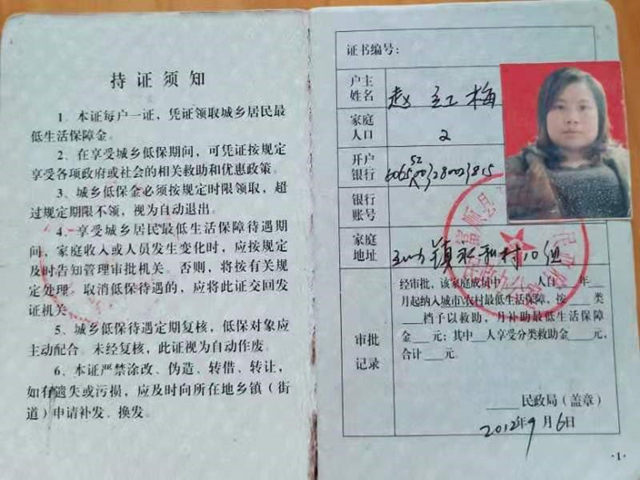 持证须知
1、本证每户一证，凭证领取城乡居民最
低生活保障金。
2、在享受城乡低保期间，可凭证按规定
享受各项政府或社会的相关救助和优惠政策。
3、城乡低保金必须按规定时限领取，超
过规定期限不领，视为自动退出。
4、享受城乡居民最低生活保障待遇期
间，家庭收入或人员发生变化时，应按规定
及时告知管理审批机关。否则，将按有关规
定处理。取消低保待遇的，应将此证交回发
证机关。
5、城乡低保待遇定期复核，低保对象应
主动配合。未经复核，此证视为自动作废。
6、本证严禁涂改、伪造、转借、转让，
如有遗失或污损，应及时向所在地乡镇（街
道）申请补发、换发。
证书编号：
户主
姓名
赵红梅
家庭
人口
2
开户
银行
银行
账号
家庭
地址
镇永和村10组
审批
记录
经审批，该家庭成员中 人自 年
月起纳入城市\农村最低生活保障，按 类
档予以救助，月补助最低生活保障
金 元；其中 人享受分类救助金 元，
合计 元。
民政局（盖章）
2012年9月6日
·1·